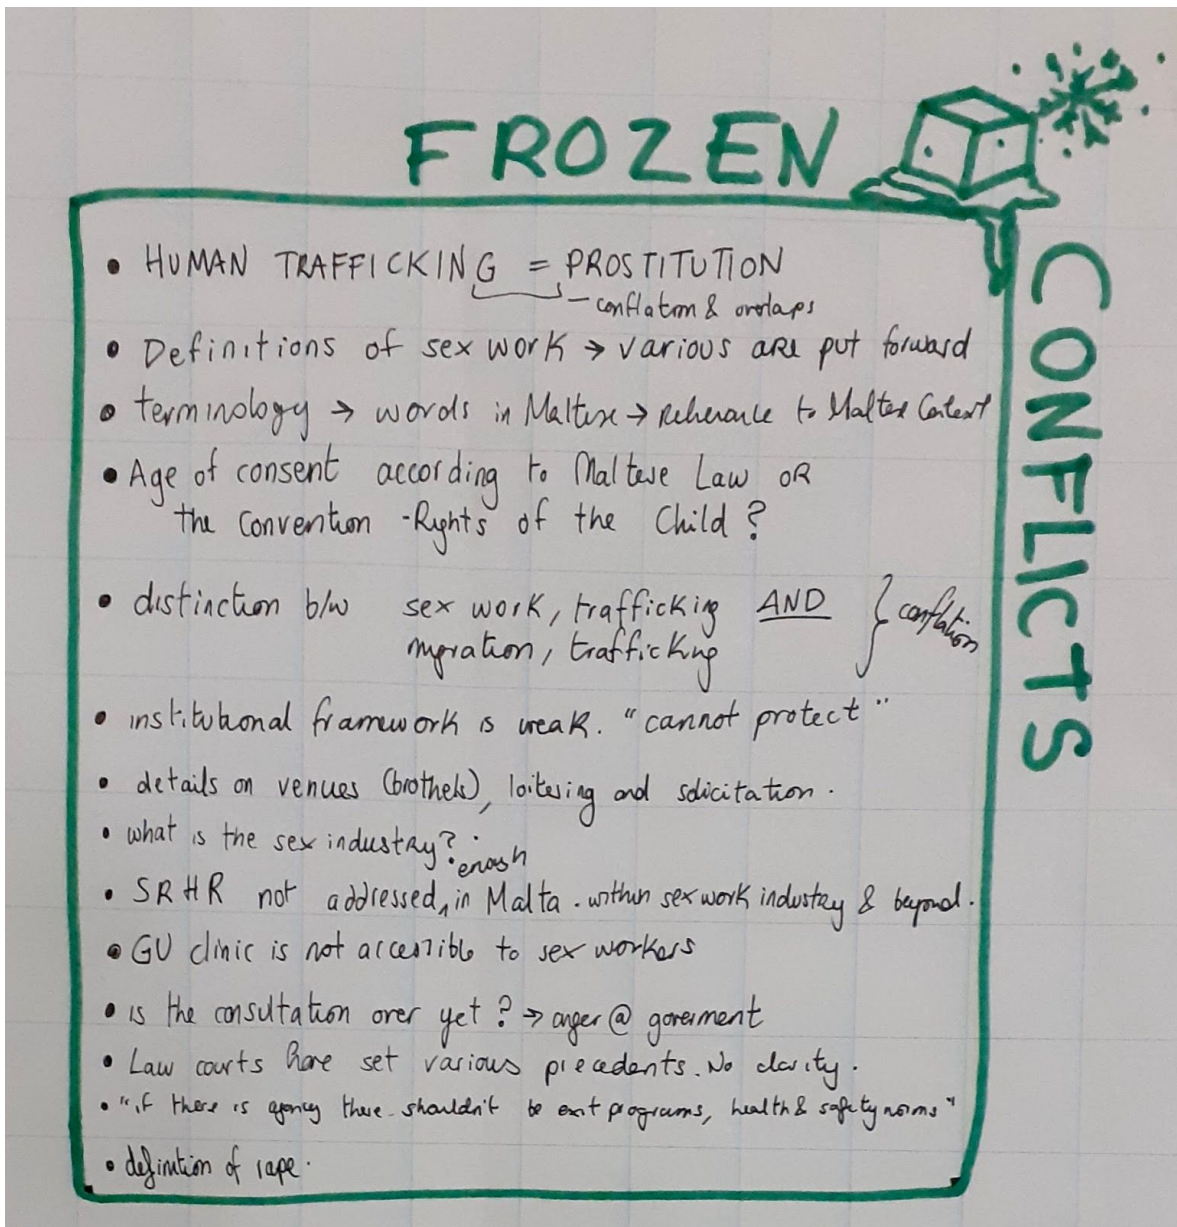 FROZEN
CONFLICTS
• HUMAN TRAFFICKING = PROSTITUTION
– conflation & overlaps
• Definitions of sex work → various are put forward
• terminology → words in Maltese → reherance to Maltese Context
• Age of consent according to Maltese Law OR
the Convention - Rights of the Child?
• distinction b/w sex work, trafficking AND
migration, trafficking
} conflation
• institutional framework is weak. "cannot protect"
• details on venues (brothels), loitering and solicitation.
• what is the sex industry?
enough
• SRHR not addressed, in Malta. within sex work industry & beyond.
• GU clinic is not accessible to sex workers
• is the consultation over yet? → anger @ goverment
• Law courts have set various precedents. No clarity.
• "if there is agency there shouldn't be exit programs, health & safety norms"
• definition of rape.